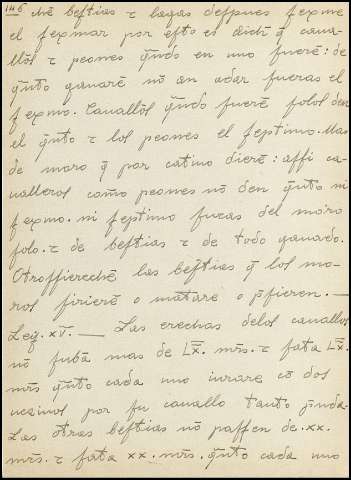 146
Nẽ beſtias τ lagas deſpues ſexme
el ſexmar por eſto es dich q̃ caua-
llõs τ peones q̃ndo en uno fuerẽ: de
q̃nto ganarẽ nõ an adar fueras el
ſexmo. Cauallõs q̃ndo fuerẽ ſolos den
el q̃nto τ los peones el ſeptimo. Mas
de moro q̃ por catiuo dierẽ: aſſi ca-
ualleros como peones nõ den q̃nto ni
ſexmo. ni ſeptimo fueras del moro
ſolo. τ de beſtias τ de todo ganado.
Otroſſierechẽ las beſtias q̃ los mo-
ros firierẽ o matare o p̃ſieren. —
Leẏ. xṼ. — Las erechas delos cauallos
nõ ſubã mas de L̃X̃. mrs. τ ſata L̃X̃.
mrs q̃nto cada uno iurare cõ dos
uezinos por ſu cauallo tanto p̃nda.
Las otras beſtias nõ paſſen de .xx.
mrs. τ ſata xx. mrs. q̃nto cada uno